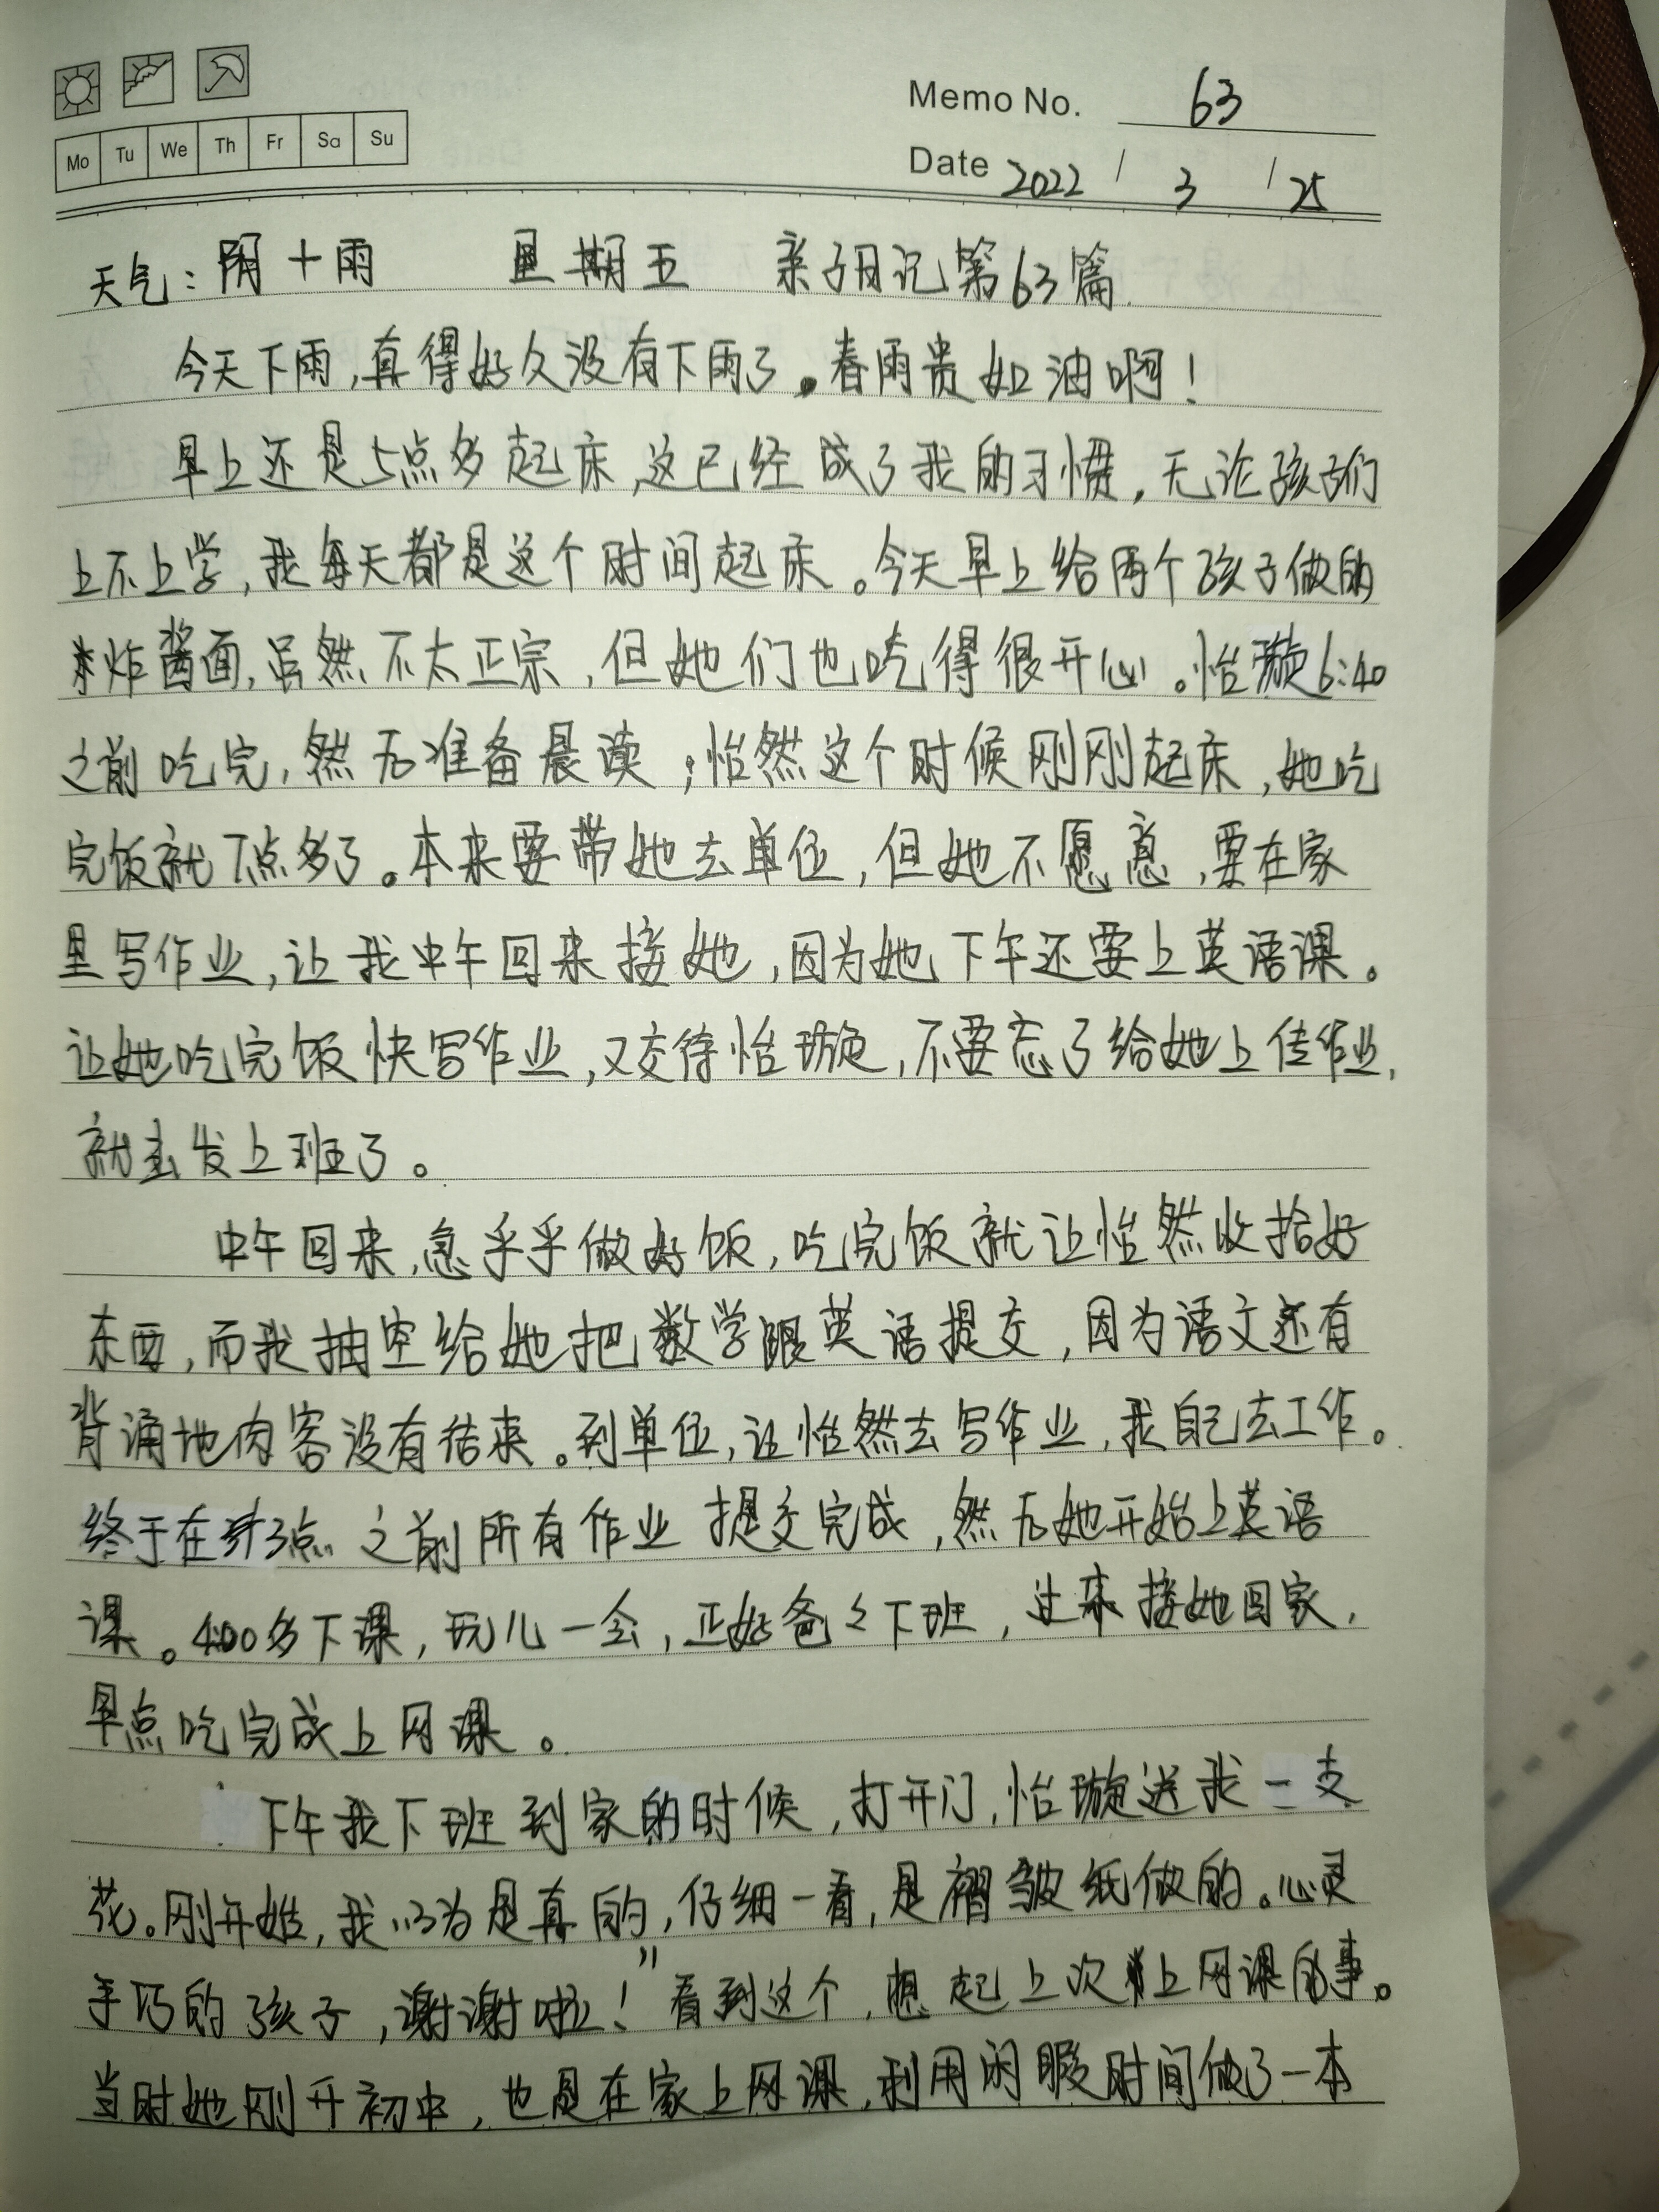 Memo No. 63
Mo Tu We Th Fr Sa Su
Date 2022 / 3 / 25
天气：阴+雨 星期五 亲子日记第63篇
今天下雨，真得好久没有下雨了。春雨贵如油啊！
早上还是5点多起床，这已经成了我的习惯，无论孩子们
上不上学，我每天都是这个时间起床。今天早上给两个孩子做的
炸酱面，虽然不太正宗，但她们也吃得很开心。怡璇6:40
之前吃完，然后准备晨读；怡然这个时候刚刚起床，她吃
完饭就7点多了。本来要带她去单位，但她不愿意，要在家
里写作业，让我中午回来接她，因为她下午还要上英语课。
让她吃完饭快写作业，又交待怡璇，不要忘了给她上传作业，
就去发上班了。
中午回来，急乎乎做好饭，吃完饭就让怡然收拾好
东西，而我抽空给她把数学跟英语提交，因为语文还有
背诵地内容没有结束。到单位，让怡然去写作业，我自己去工作。
终于在3点之前所有作业提交完成，然后她开始上英语
课。4:00多下课，玩儿一会，正好爸々下班，过来接她回家，
早点吃完成上网课。
下午我下班到家的时候，打开门，怡璇送我一支
花。刚开始，我以为是真的，仔细一看，是褶皱纸做的。心灵
手巧的孩子，谢谢啦！”看到这个，想起上次上网课的事。
当时她刚开初中，也是在家上网课，利用闲暇时间做了一本